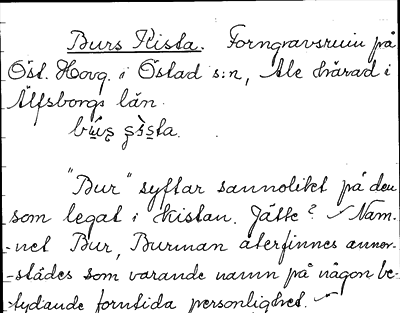 Burs Kista. Forngravsruin på
Öst. Hovg. i Östad s:n, Ale härad i
Älfsborgs län.
"Bur" syftar sannolikt på den
som legat i kistan. Jätte? Nam-
-net Bur, Burman återfinnes annor-
-städes som varande namn på någon be-
-tydande forntida personlighet.